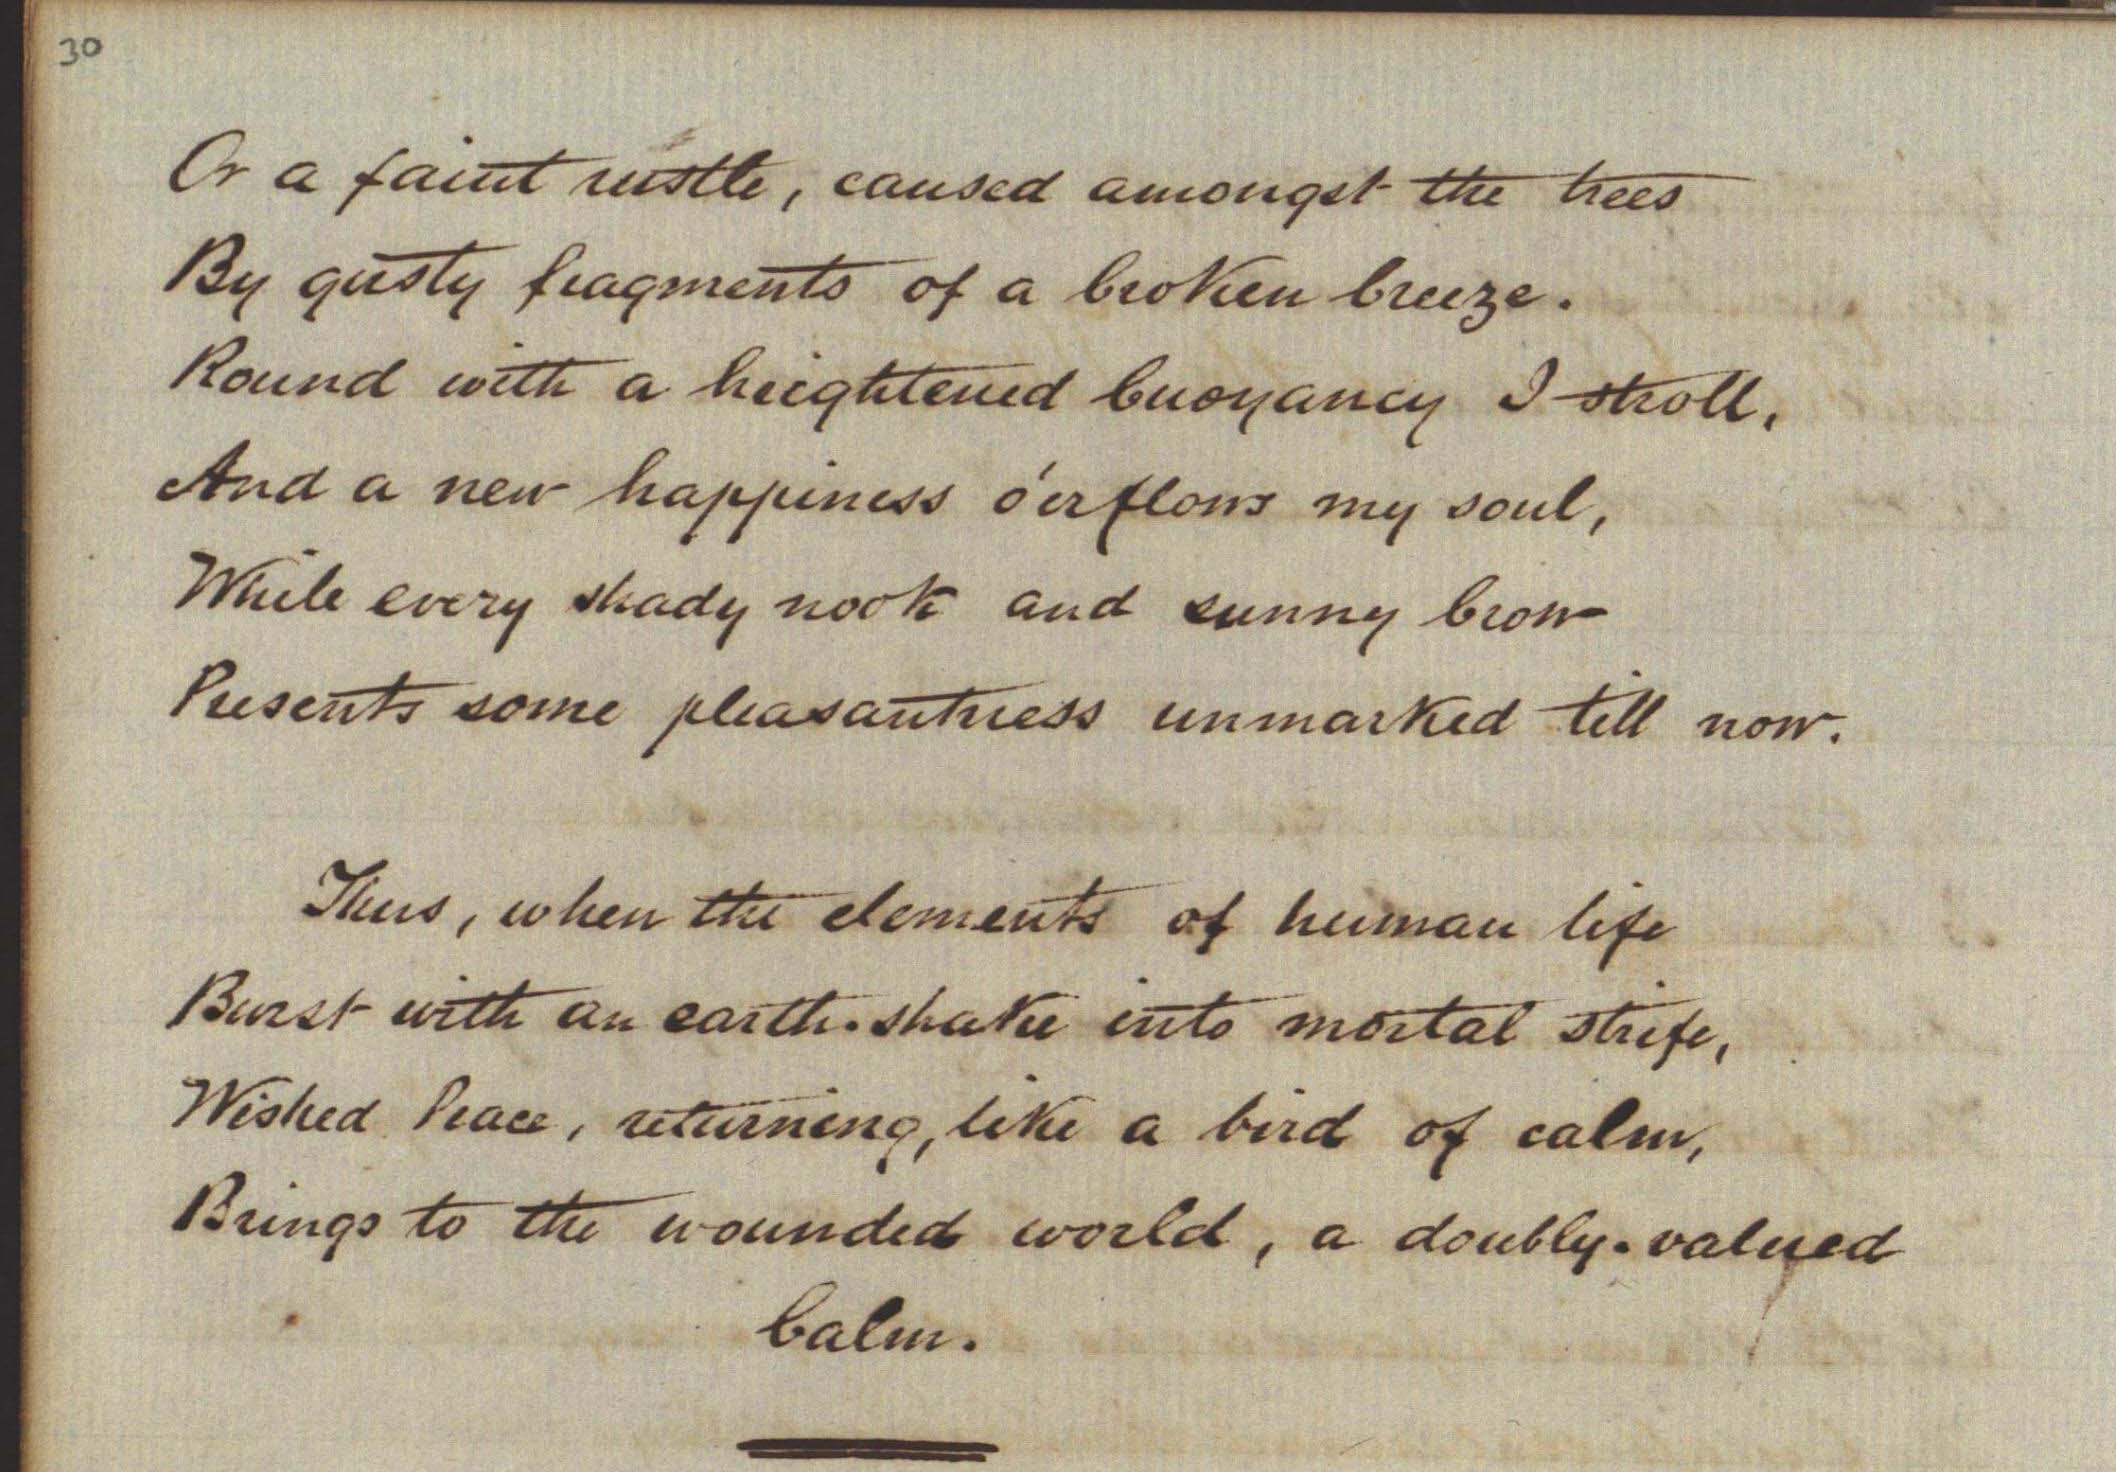 30
Or a faint rustle, caused amongst the trees
By gusty fragments of a broken breeze.
Round with a heightened buoyancy I stroll,
And a new happiness o'erflows my soul,
While every shady nook and sunny brow
Presents some pleasantness unmarked till now.
Thus, when the elements of human life
Burst with an earth-shake into mortal strife,
Wished Peace, returning, like a bird of calm,
Brings to the wounded world, a doubly-valued
balm.